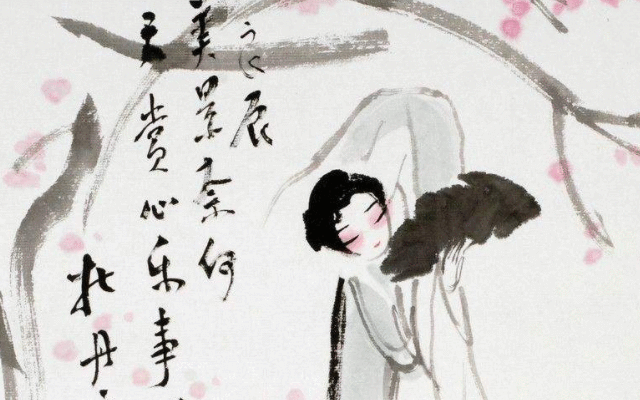 良辰
美景奈何
天赏心乐事
牡丹